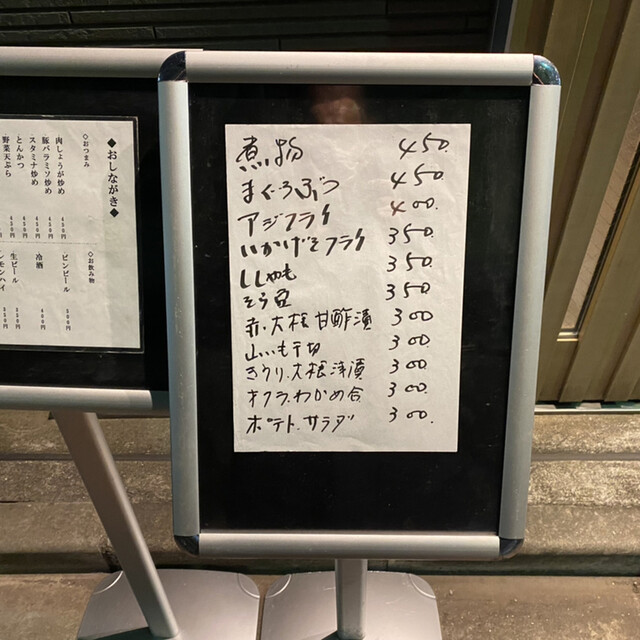 煮物 450.
まぐろぶつ 450.
アジフライ 400.
いかげそフライ 350.
ししゃも 350.
そら豆 350
赤大根甘酢漬 300
山いも千切 300
きうり、大根浅漬 300.
オクラ、わかめ合 300.
ポテト、サラダ 300.
◆おしながき◆
◇おつまみ
肉しょうが炒め 450円
豚バラミソ炒め 450円
スタミナ炒め 450円
とんかつ 450円
野菜天ぷら
◇お飲み物
ビンビール
冷酒
生ビール